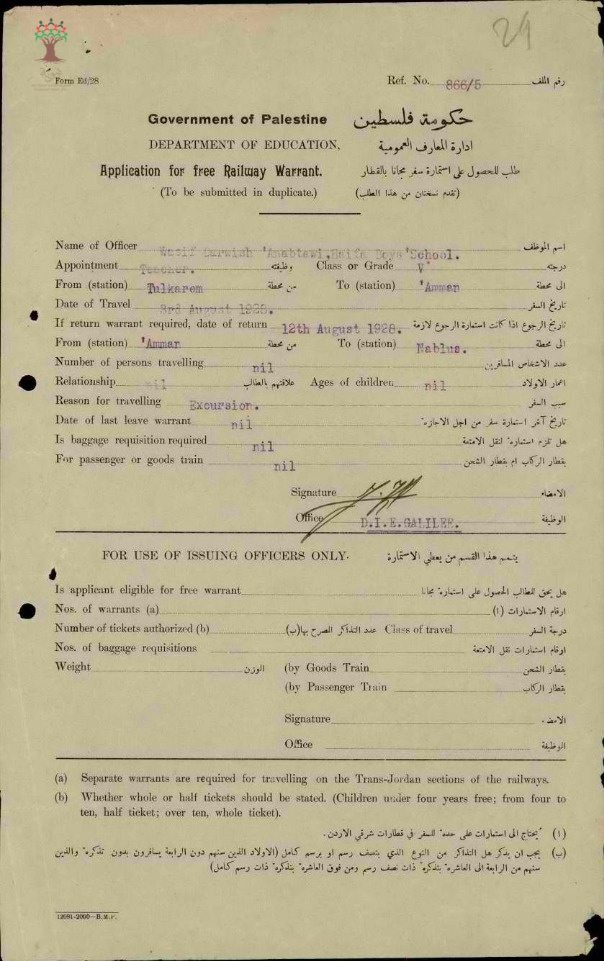 29
Form Ed/28
Ref. No. 866/5 رقم الملف
Government of Palestine حكومة فلسطين
DEPARTMENT OF EDUCATION. ادارة المعارف العمومية
Application for free Railway Warrant. طلب للحصول على استمارة سفر مجانا بالقطار
(To be submitted in duplicate.) (تقدم نسختان من هذا الطلب)
Name of Officer Wasif Darwish 'Anabtawi, Haifa Boys' School. اسم الموظف
Appointment Teacher. وظيفته Class or Grade V درجته
From (station) Tulkarem من محطة To (station) 'Amman الى محطة
Date of Travel 3rd August 1928. تاريخ السفر
If return warrant required, date of return 12th August 1928. تاريخ الرجوع اذا كانت استمارة الرجوع لازمة
From (station) 'Amman من محطة To (station) Nablus. الى محطة
Number of persons travelling nil عدد الاشخاص المسافرين
Relationship nil علاقتهم بالطالب Ages of children nil اعمار الاولاد
Reason for travelling Excursion. سبب السفر
Date of last leave warrant nil تاريخ آخر استمارة سفر من اجل الاجازة
Is baggage requisition required nil هل تلزم استمارة لنقل الامتعة
For passenger or goods train nil بقطار الركاب ام بقطار الشحن
Signature الامضاء
Office D.I.E.GALILEE. الوظيفة
FOR USE OF ISSUING OFFICERS ONLY. يتمم هذا القسم من يعطي الاستمارة
Is applicant eligible for free warrant هل يحق للطالب الحصول على استمارة مجانا
Nos. of warrants (a) ارقام الاستمارات (ا)
Number of tickets authorized (b) عدد التذاكر المصرح بها (ب) Class of travel درجة السفر
Nos. of baggage requisitions ارقام استمارات نقل الامتعة
Weight الوزن (by Goods Train بقطار الشحن
(by Passenger Train بقطار الركاب
Signature الامضاء
Office الوظيفة
(a) Separate warrants are required for travelling on the Trans-Jordan sections of the railways.
(b) Whether whole or half tickets should be stated. (Children under four years free; from four to
ten, half ticket; over ten, whole ticket).
(ا) يحتاج الى استمارات على حدة للسفر في قطارات شرقي الاردن.
(ب) يجب ان يذكر هل التذاكر من النوع الذي بنصف رسم او برسم كامل (الاولاد الذين سنهم دون الرابعة يسافرون بدون تذكرة والذين
سنهم من الرابعة الى العاشرة بتذكرة ذات نصف رسم ومن فوق العاشرة بتذكرة ذات رسم كامل)
12081-2000—B.M.P.